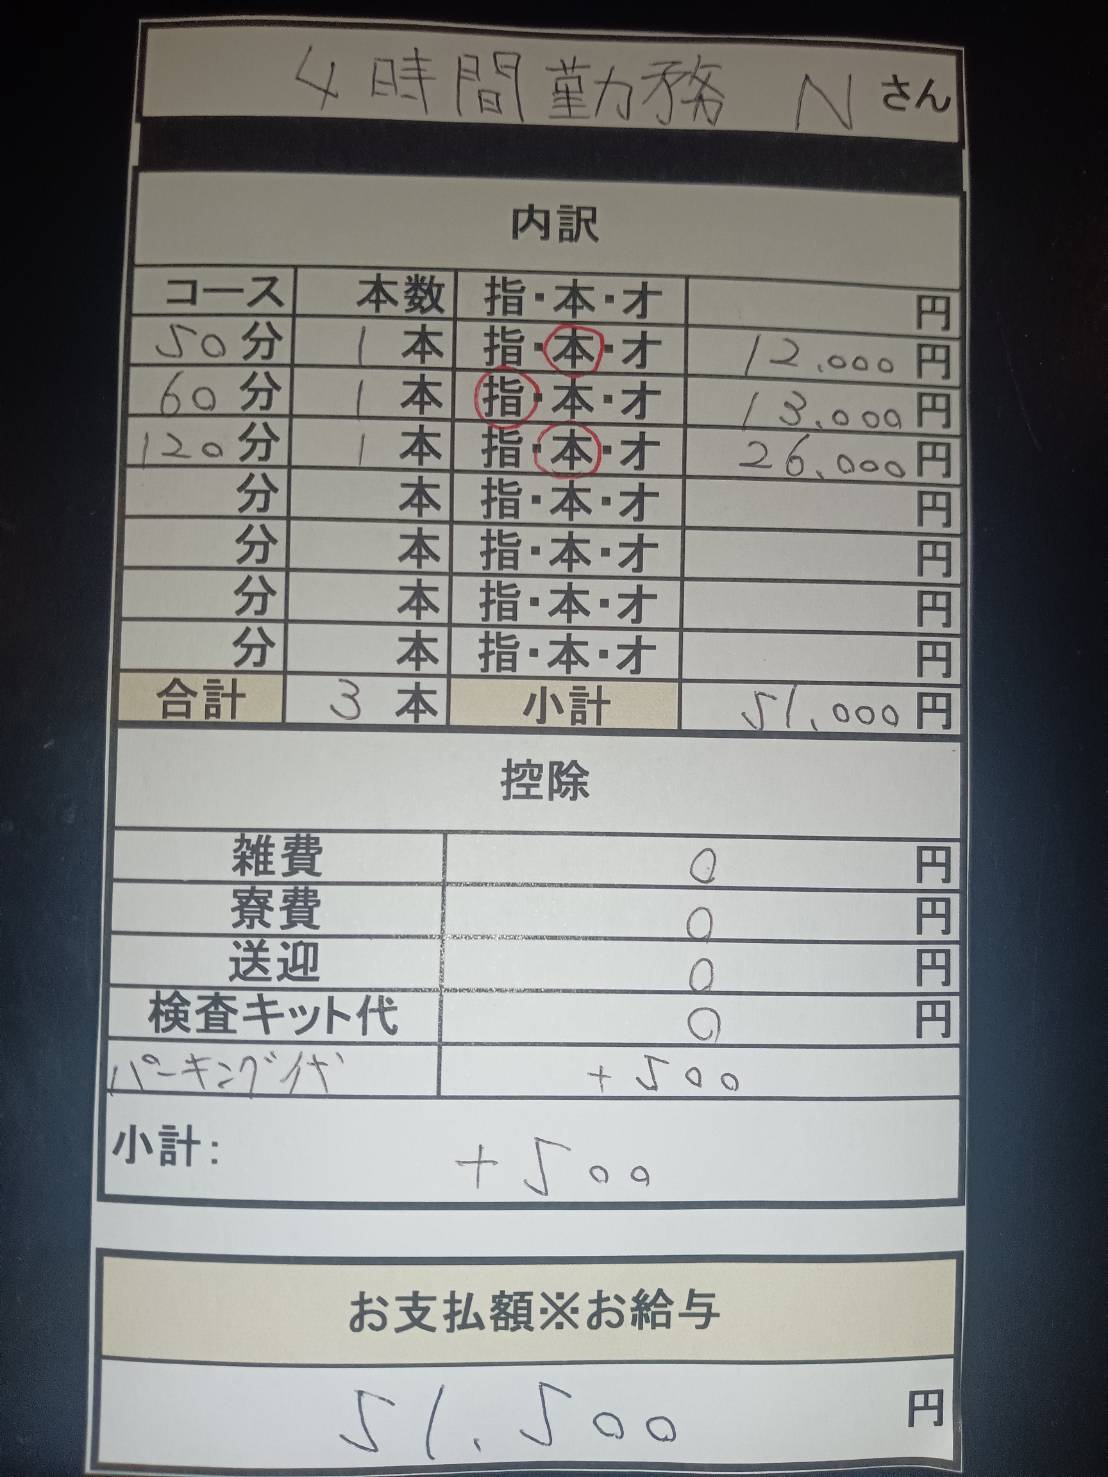 4時間勤務 N さん
内訳
コース 本数 指・本・オ 円
50分 1本 指・本・オ 12.000円
60分 1本 指・本・オ 13.000円
120分 1本 指・本・オ 26.000円
分 本 指・本・オ 円
分 本 指・本・オ 円
分 本 指・本・オ 円
分 本 指・本・オ 円
合計 3本 小計 51.000円
控除
雑費 0円
寮費 0円
送迎 0円
検査キット代 0円
パーキング代 +500
小計: +500
お支払額※お給与
51.500円